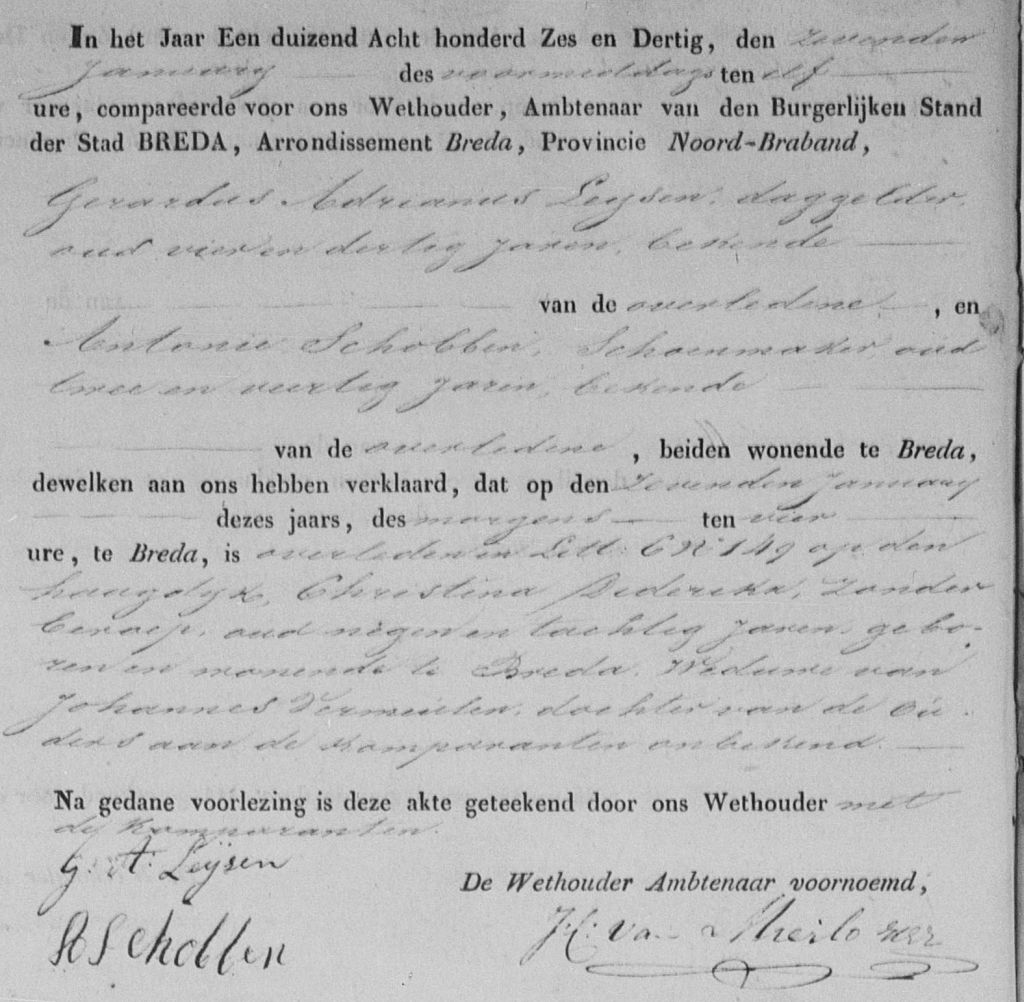 In het Jaar Een duizend Acht honderd Zes en Dertig, den zevenden
January des voormiddags ten elf
ure, compareerde voor ons Wethouder, Ambtenaar van den Burgerlijken Stand
der Stad BREDA, Arrondissement Breda, Provincie Noord-Braband,
Gerardus Adrianus Leysen, daggelder,
oud vier en dertig Jaren, bekende
van de overledene, en
Antonie Schobben, Schoenmaker, oud
twee en veertig Jaren, bekende
van de overledene, beiden wonende te Breda,
dewelken aan ons hebben verklaard, dat op den zevenden January
dezes jaars, des morgens ten vier
ure, te Breda, is overleden in Lett: C No 149 op den
haagdyk, Christina Diderika, zonder
beroep, oud negen en tachtig Jaren, gebo-
ren en wonende te Breda, Weduwe van
Johannes Vermeulen, dochter van de ou-
ders aan de komparanten onbekend.
Na gedane voorlezing is deze akte geteekend door ons Wethouder met
de komparanten.
G: A: Leijsen
De Wethouder Ambtenaar voornoemd,
A Schobben
J:C: van